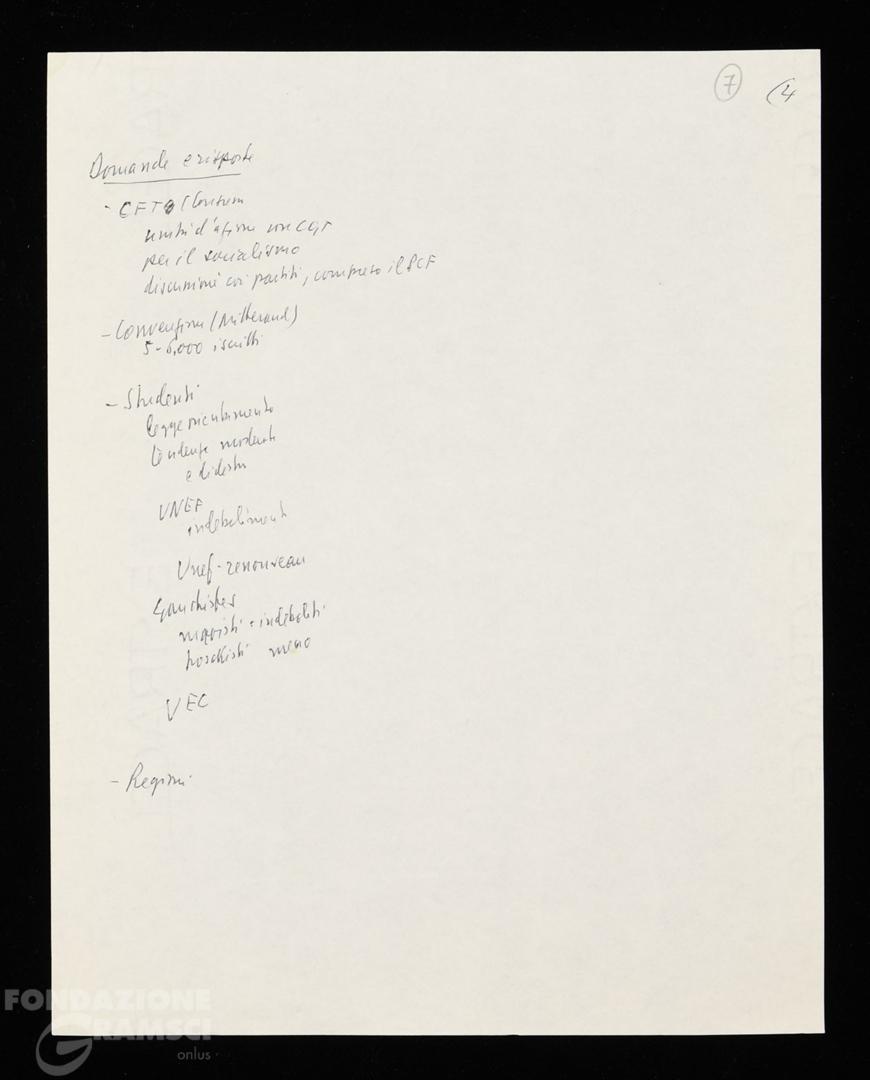 7 (4
Domande e risposte
- CFTD (
unità d'azione con CGT
per il socialismo
discussioni coi partiti, compreso il PCF
- Convenzione (Mitterand)
5-6.000 iscritti
- Studenti
legge orientamento
tendenze moderate
e di destra
UNEF
indebolimento
Unef-renouveau
Gauchistes
maoisti indeboliti
troskisti meno
UEC
- Regioni
FONDAZIONE
GRAMSCI
onlus